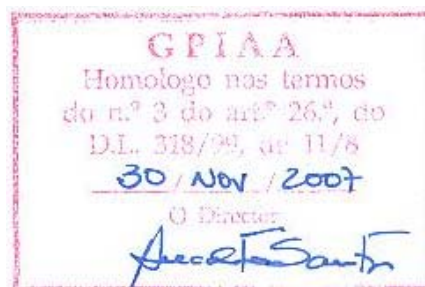 GPIAA
Homologo nos termos
do n.º 3 do art.º 26.º, do
D.L. 318/99, de 11/8
30 / Nov / 2007
O Director